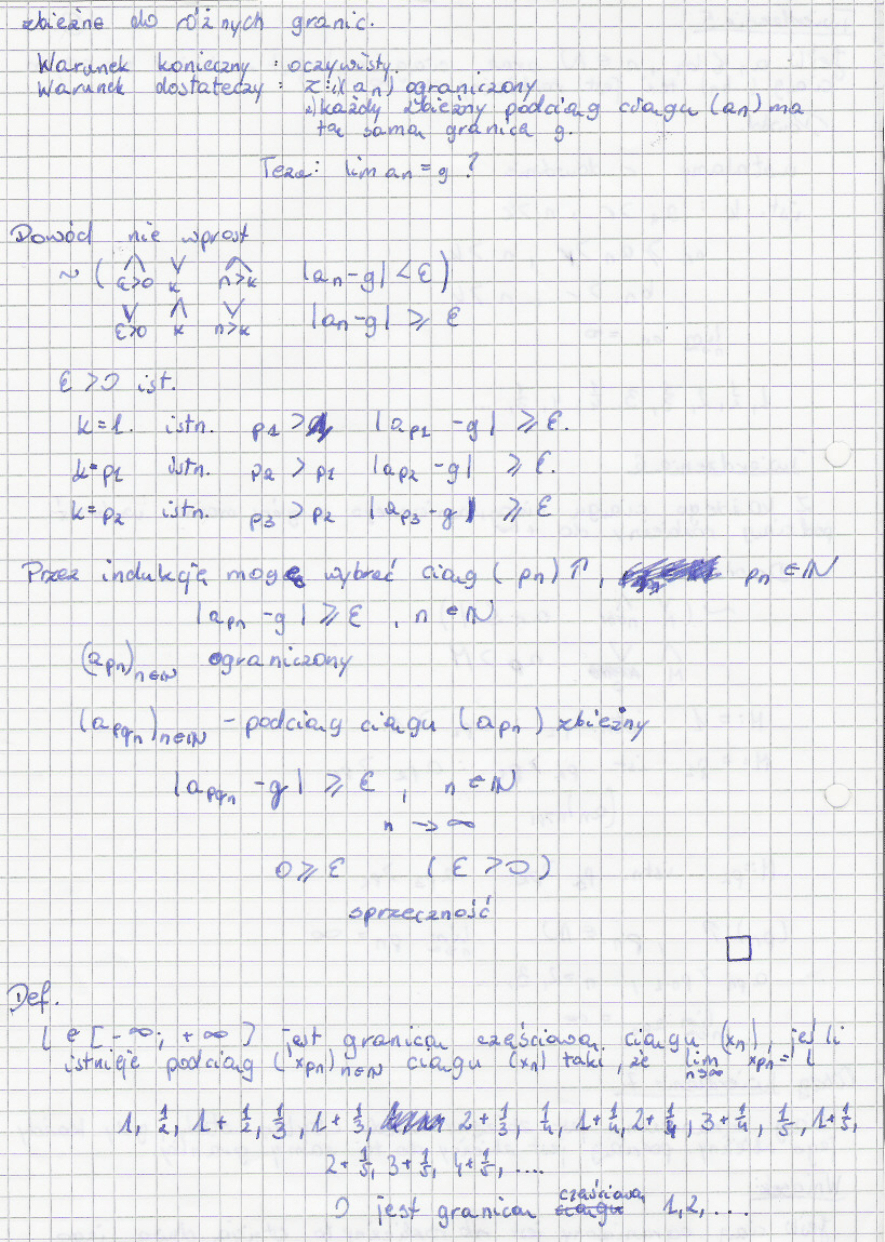 zbieżne do różnych granic.
Warunek konieczny : oczywisty.
Warunek dostateczy : Z: 1) (aₙ) ograniczony
2) każdy zbieżny podciąg ciągu (aₙ) ma
tą samą granicę g.
Teza: lim aₙ = g ?
Dowód nie wprost
~ ( ⋀_{ε>0} ⋁_{k} ⋀_{n>k} |aₙ - g| < ε )
⋁_{ε>0} ⋀_{k} ⋁_{n>k} |aₙ - g| ⩾ ε
ε > 0 ist.
k=1. istn. p₁ > 1, |a_{p₁} - g| ⩾ ε.
k=p₁ istn. p₂ > p₁ |a_{p₂} - g| ⩾ ε.
k=p₂ istn. p₃ > p₂ |a_{p₃} - g| ⩾ ε
Przez indukcję mogę wybrać ciąg (pₙ) ↑, pₙ ∈ ℕ
|a_{pₙ} - g| ⩾ ε , n ∈ ℕ
(a_{pₙ})_{n∈ℕ} ograniczony
(a_{p_{qₙ}})_{n∈ℕ} - podciąg ciągu (a_{pₙ}) zbieżny
|a_{p_{qₙ}} - g| ⩾ ε , n ∈ ℕ
n → ∞
0 ⩾ ε (ε > 0)
sprzeczność
□
Def.
l ∈ [-∞; +∞] jest granicą częściową ciągu (xₙ), jeśli
istnieje podciąg (x_{pₙ})_{n∈ℕ} ciągu (xₙ) taki, że lim_{n→∞} x_{pₙ} = l
1, 1/2, 1+1/2, 1/3, 1+1/3, 2+1/3, 1/4, 1+1/4, 2+1/4, 3+1/4, 1/5, 1+1/5,
2+1/5, 3+1/5, 4+1/5, ....
0 jest granicą częściową 1,2, ...